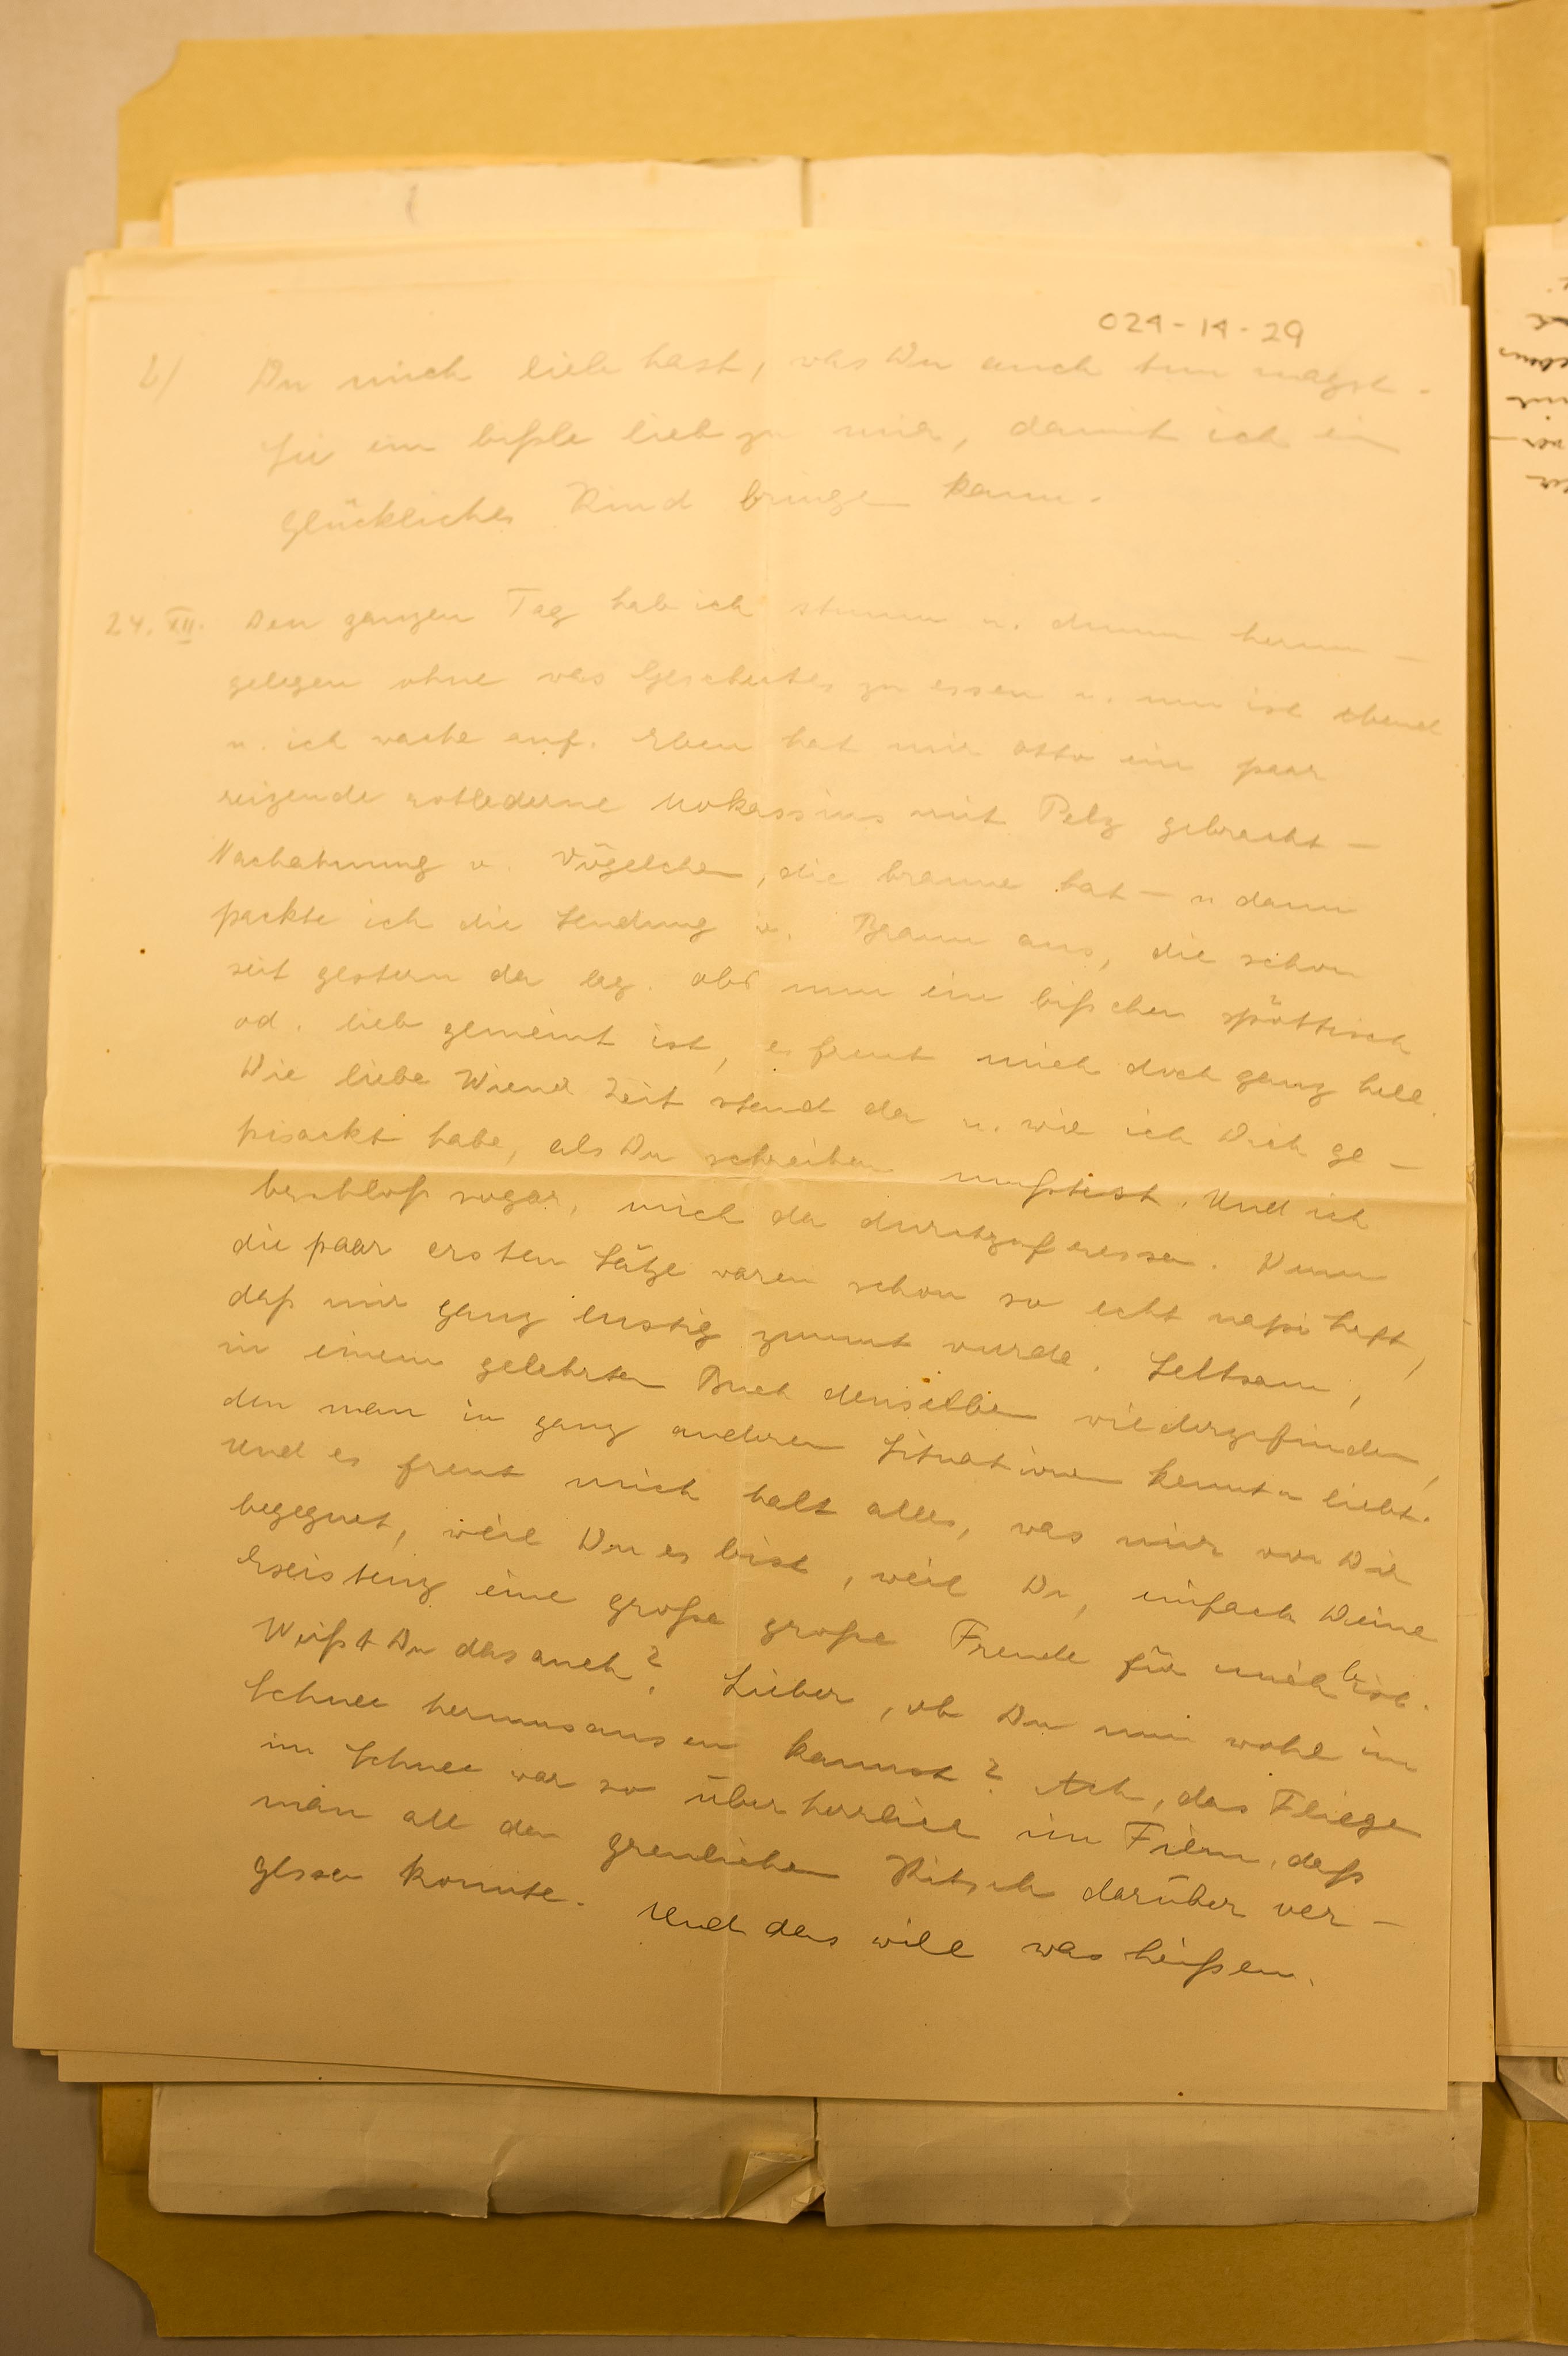 024-14-29
b) Du mich lieb hast, was Du auch tun magst.
Sei ein bißle lieb zu mir, damit ich ein
glückliches Kind bringen kann.
24. XII. Den ganzen Tag hab ich stumm u. dumm herum-
gelegen ohne was Gescheites zu essen u. nun ist abend
u. ich wache auf. Eben hat mir Otto ein paar
reizende rotlederne Mokassins mit Pelz gebracht -
Nachahmung v. Vögelchen, die braune hat - u dann
packte ich die Sendung v. Braum aus, die schon
seit gestern da lag. Obs nun ein bißchen spöttisch
od. lieb gemeint ist, es freut mich doch ganz hell.
Die liebe Wiener Zeit stand da u. wie ich Dich ge-
pisackt habe, als Du schreiben mußtest. Und ich
beschloß sogar, mich da durchzufressen. Denn
die paar ersten Sätze waren schon so echt haft,
daß mir ganz lustig zumut wurde. Seltsam,
in einem gelehrten Buch denselben wiederzufinden,
den man in ganz anderen Situationen kennt u liebt.
Und es freut mich halt alles, was mir von Dir
begegnet, weil Du es bist, weil Du, einfach Deine
Existenz eine große große Freude für mich bist.
Weißt Du das auch? Lieber, ob Du nun wohl im
Schnee herumsausen kannst? Ach, das Fliegen
im Schnee war so überherrlich im Film, daß
man all den greulichen Kitsch darüber ver-
gessen konnte. Und das will was heißen.